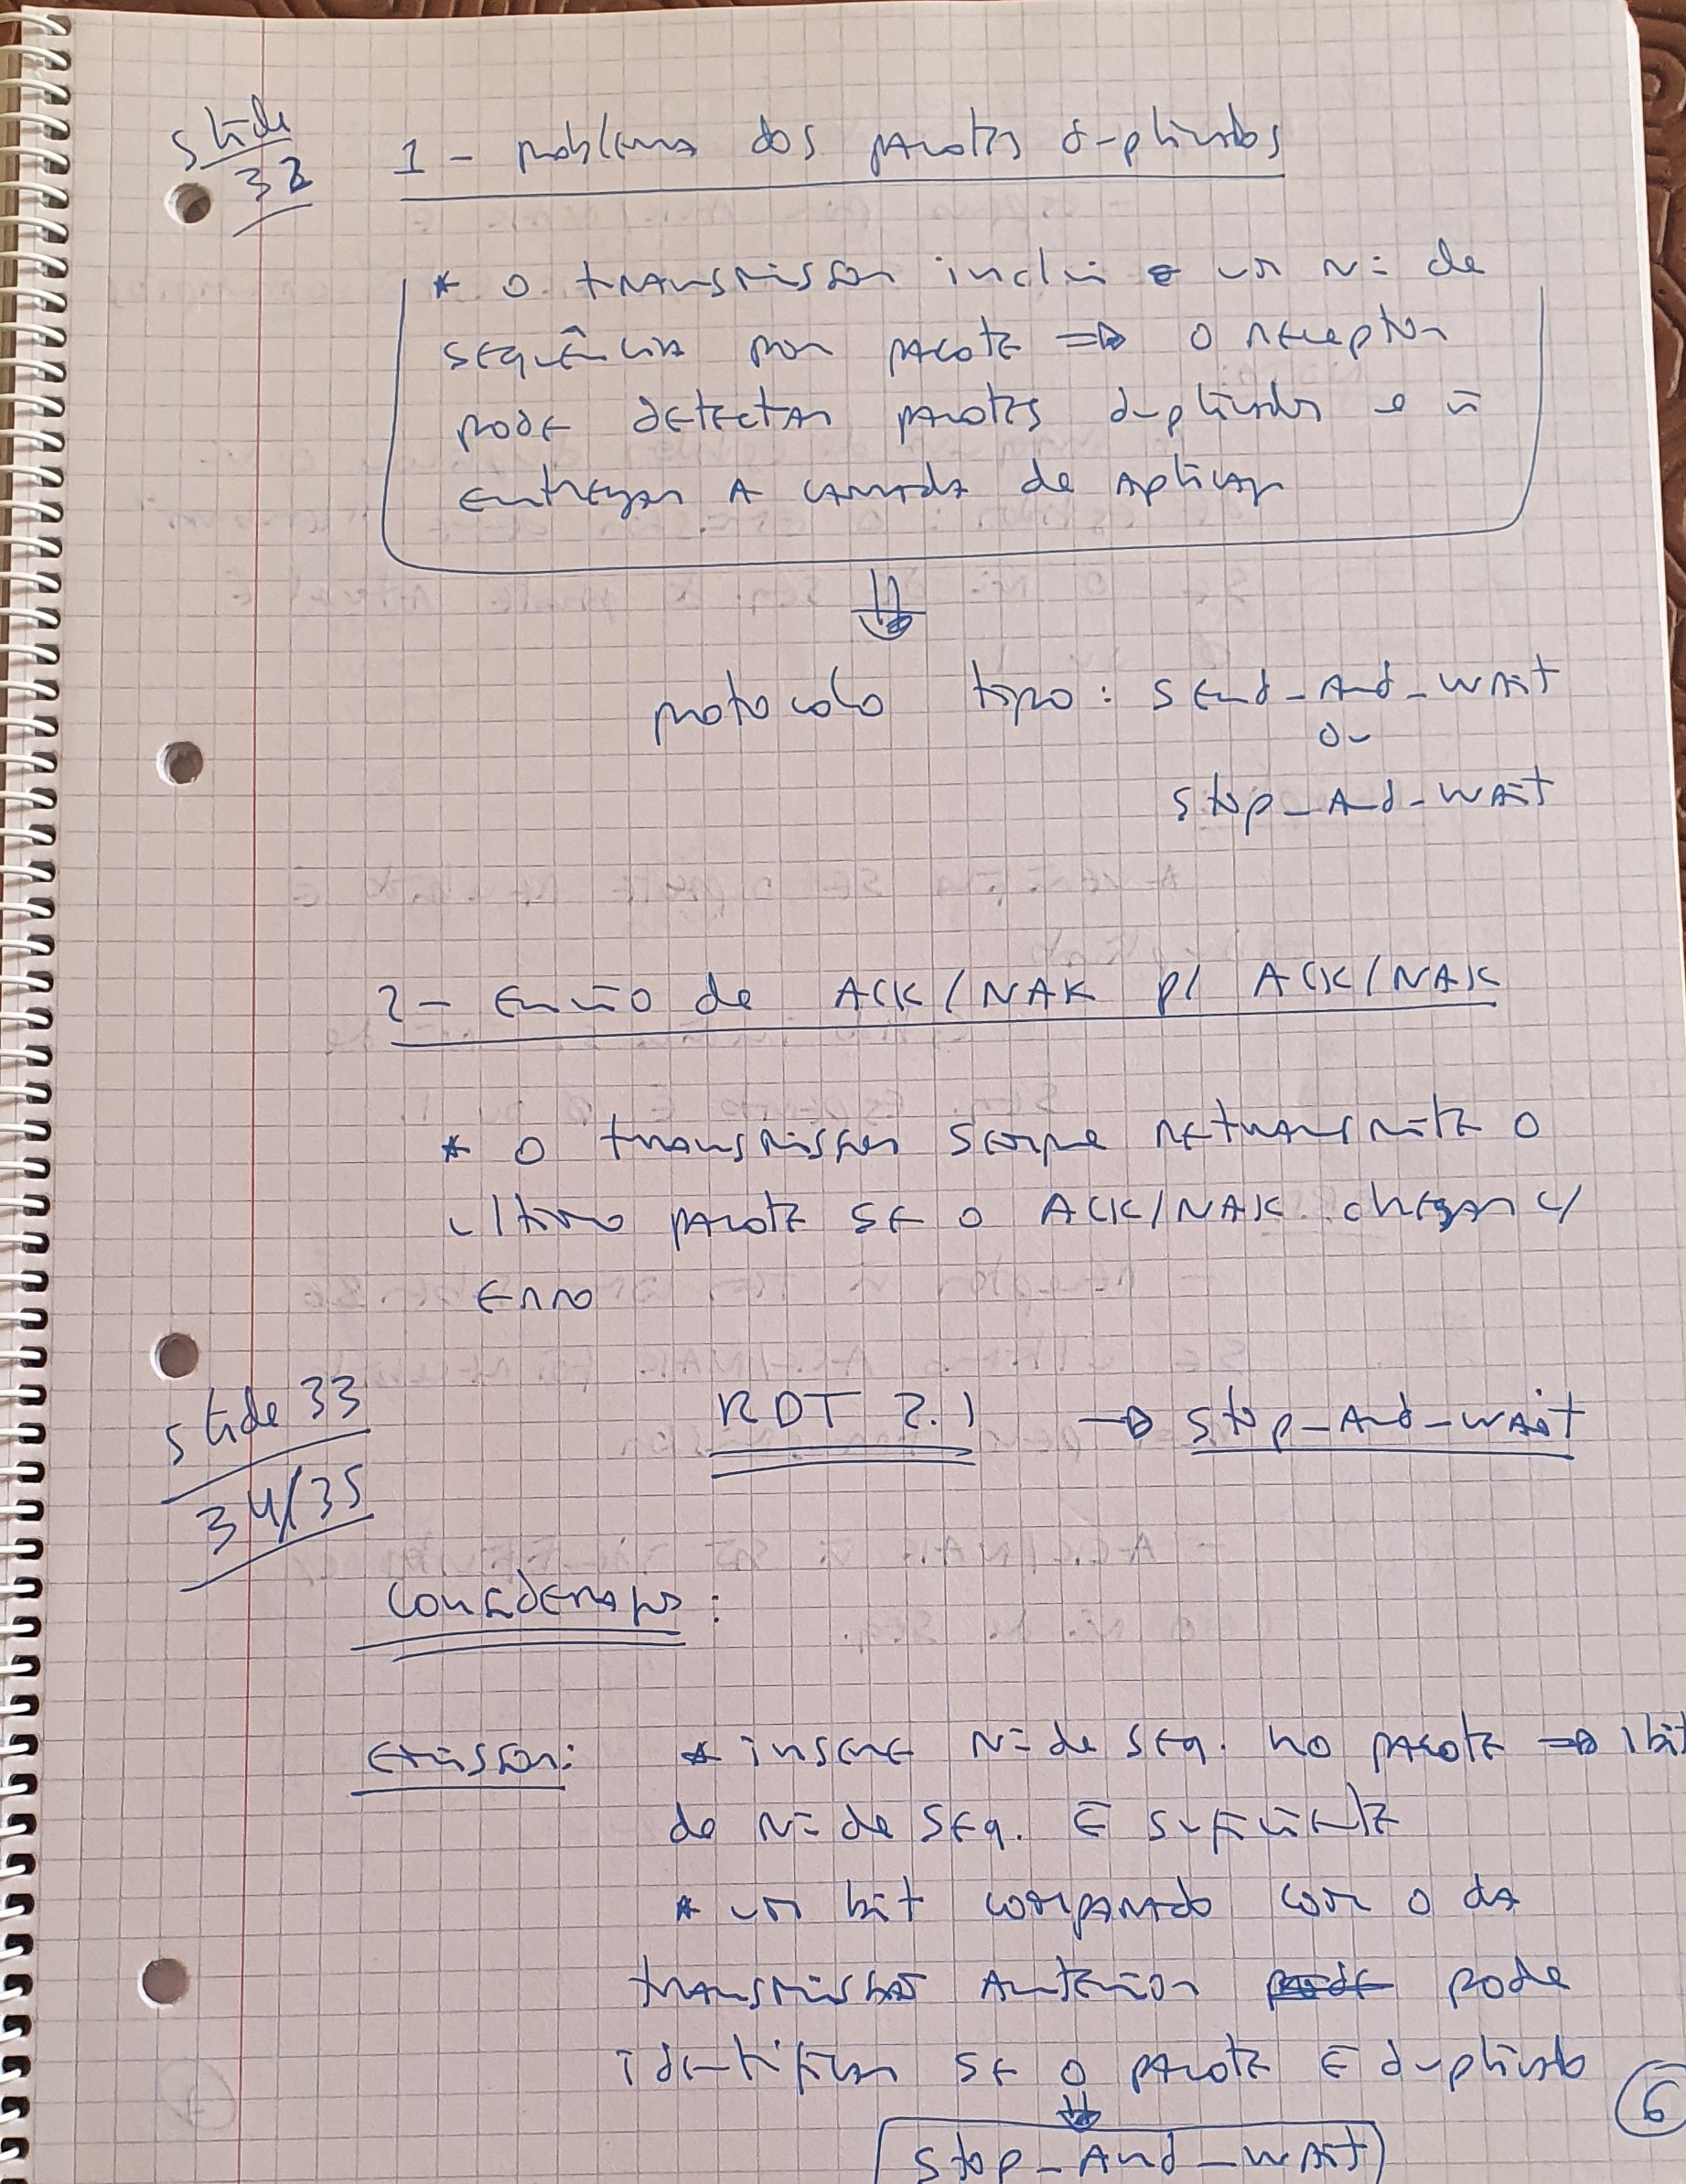 slide
32
1 - problema dos pacotes duplicados
* o transmissor inclui um Nº de
sequência por pacote => o receptor
pode detectar pacotes duplicados e ñ
entregar a camada de aplicação
protocolo tipo: send_and_wait
ou
stop_and_wait
2 - Envio de ACK/NAK p/ ACK/NAK
* o transmissor sempre retransmite o
ultimo pacote se o ACK/NAK chegar c/
erro
slide 33
34/35
RDT 2.1 -> stop_and_wait
Considerações:
Emissor: * insere Nº de seq. no pacote => 1 bit
de Nº de seq. é suficiente
* um bit comparado com o da
transmissão anterior pode
identificar se o pacote é duplicado
stop_and_wait
6